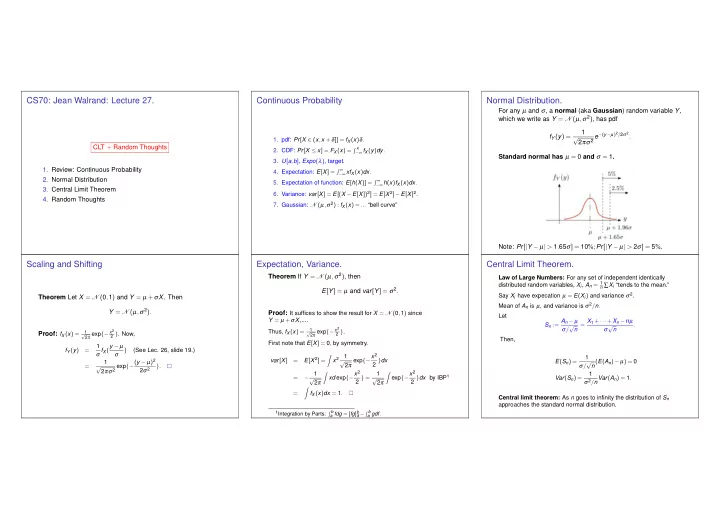 CS70: Jean Walrand: Lecture 27.
CLT + Random Thoughts
1. Review: Continuous Probability
2. Normal Distribution
3. Central Limit Theorem
4. Random Thoughts
Continuous Probability
1. pdf: Pr[X ∈ (x, x + δ]] = f_X(x)δ.
2. CDF: Pr[X ≤ x] = F_X(x) = ∫_{−∞}^x f_X(y)dy.
3. U[a,b], Expo(λ), target.
4. Expectation: E[X] = ∫_{−∞}^∞ x f_X(x)dx.
5. Expectation of function: E[h(X)] = ∫_{−∞}^∞ h(x)f_X(x)dx.
6. Variance: var[X] = E[(X − E[X])²] = E[X²] − E[X]².
7. Gaussian: 𝒩(μ,σ²) : f_X(x) = ... “bell curve”
Normal Distribution.
For any μ and σ, a normal (aka Gaussian) random variable Y,
which we write as Y = 𝒩(μ,σ²), has pdf
f_Y(y) = 1/√(2πσ²) e^{−(y−μ)²/2σ²}.
Standard normal has μ = 0 and σ = 1.
f_Y(y)
5%
2.5%
y
μ
μ + 1.96σ
μ + 1.65σ
Note: Pr[|Y − μ| > 1.65σ] = 10%; Pr[|Y − μ| > 2σ] = 5%.
Scaling and Shifting
Theorem Let X = 𝒩(0,1) and Y = μ + σX. Then
Y = 𝒩(μ,σ²).
Proof: f_X(x) = 1/√(2π) exp{−x²/2}. Now,
f_Y(y) = 1/σ f_X((y−μ)/σ) (See Lec. 26, slide 19.)
= 1/√(2πσ²) exp{−(y−μ)²/2σ²}. □
Expectation, Variance.
Theorem If Y = 𝒩(μ,σ²), then
E[Y] = μ and var[Y] = σ².
Proof: It suffices to show the result for X = 𝒩(0,1) since
Y = μ + σX,....
Thus, f_X(x) = 1/√(2π) exp{−x²/2}.
First note that E[X] = 0, by symmetry.
var[X] = E[X²] = ∫ x² 1/√(2π) exp{−x²/2}dx
= −1/√(2π) ∫ xd exp{−x²/2} = 1/√(2π) ∫ exp{−x²/2}dx by IBP¹
= ∫ f_X(x)dx = 1. □
¹Integration by Parts: ∫_a^b fdg = [fg]_a^b − ∫_a^b gdf.
Central Limit Theorem.
Law of Large Numbers: For any set of independent identically
distributed random variables, X_i, A_n = 1/n ∑ X_i “tends to the mean.”
Say X_i have expectation μ = E(X_i) and variance σ².
Mean of A_n is μ, and variance is σ²/n.
Let
S_n := (A_n − μ)/(σ/√n) = (X_1 + ··· + X_n − nμ)/(σ√n).
Then,
E(S_n) = 1/(σ/√n) (E(A_n) − μ) = 0
Var(S_n) = 1/(σ²/n) Var(A_n) = 1.
Central limit theorem: As n goes to infinity the distribution of S_n
approaches the standard normal distribution.